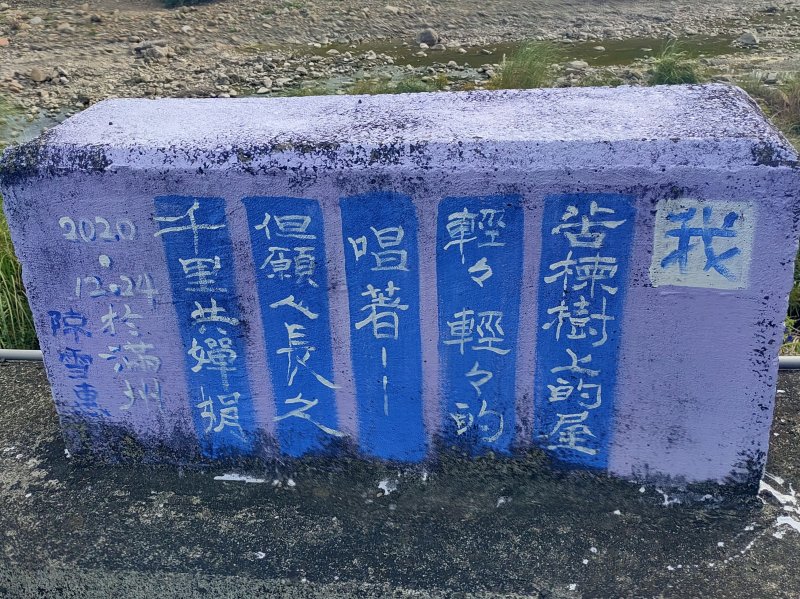 我
苦楝樹上的屋
輕々輕々的
唱著——
但願人長久
千里共嬋娟
2020.12.24於滿州
陳雪惠